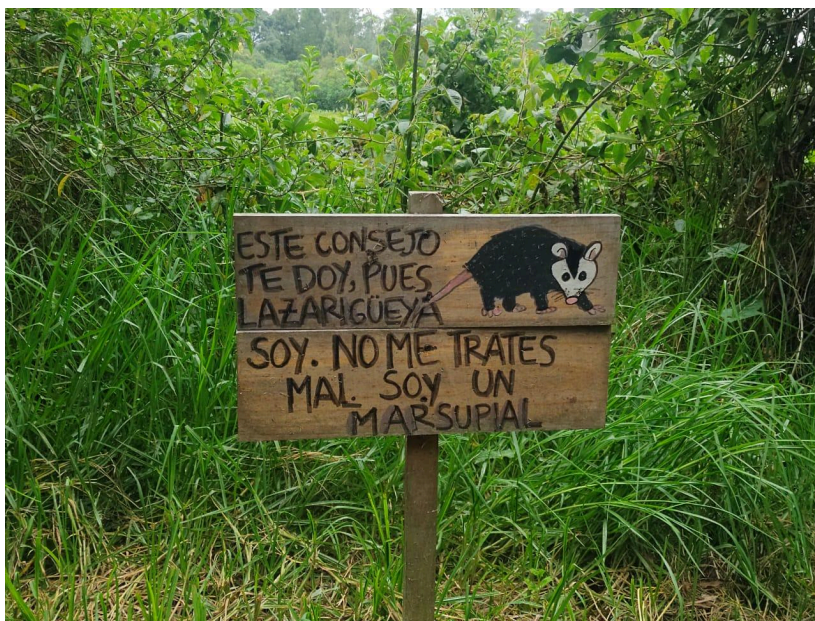 ESTE CONSEJO
TE DOY, PUES
LA ZARIGÜEYA
SOY. NO ME TRATES
MAL. SOY UN
MARSUPIAL